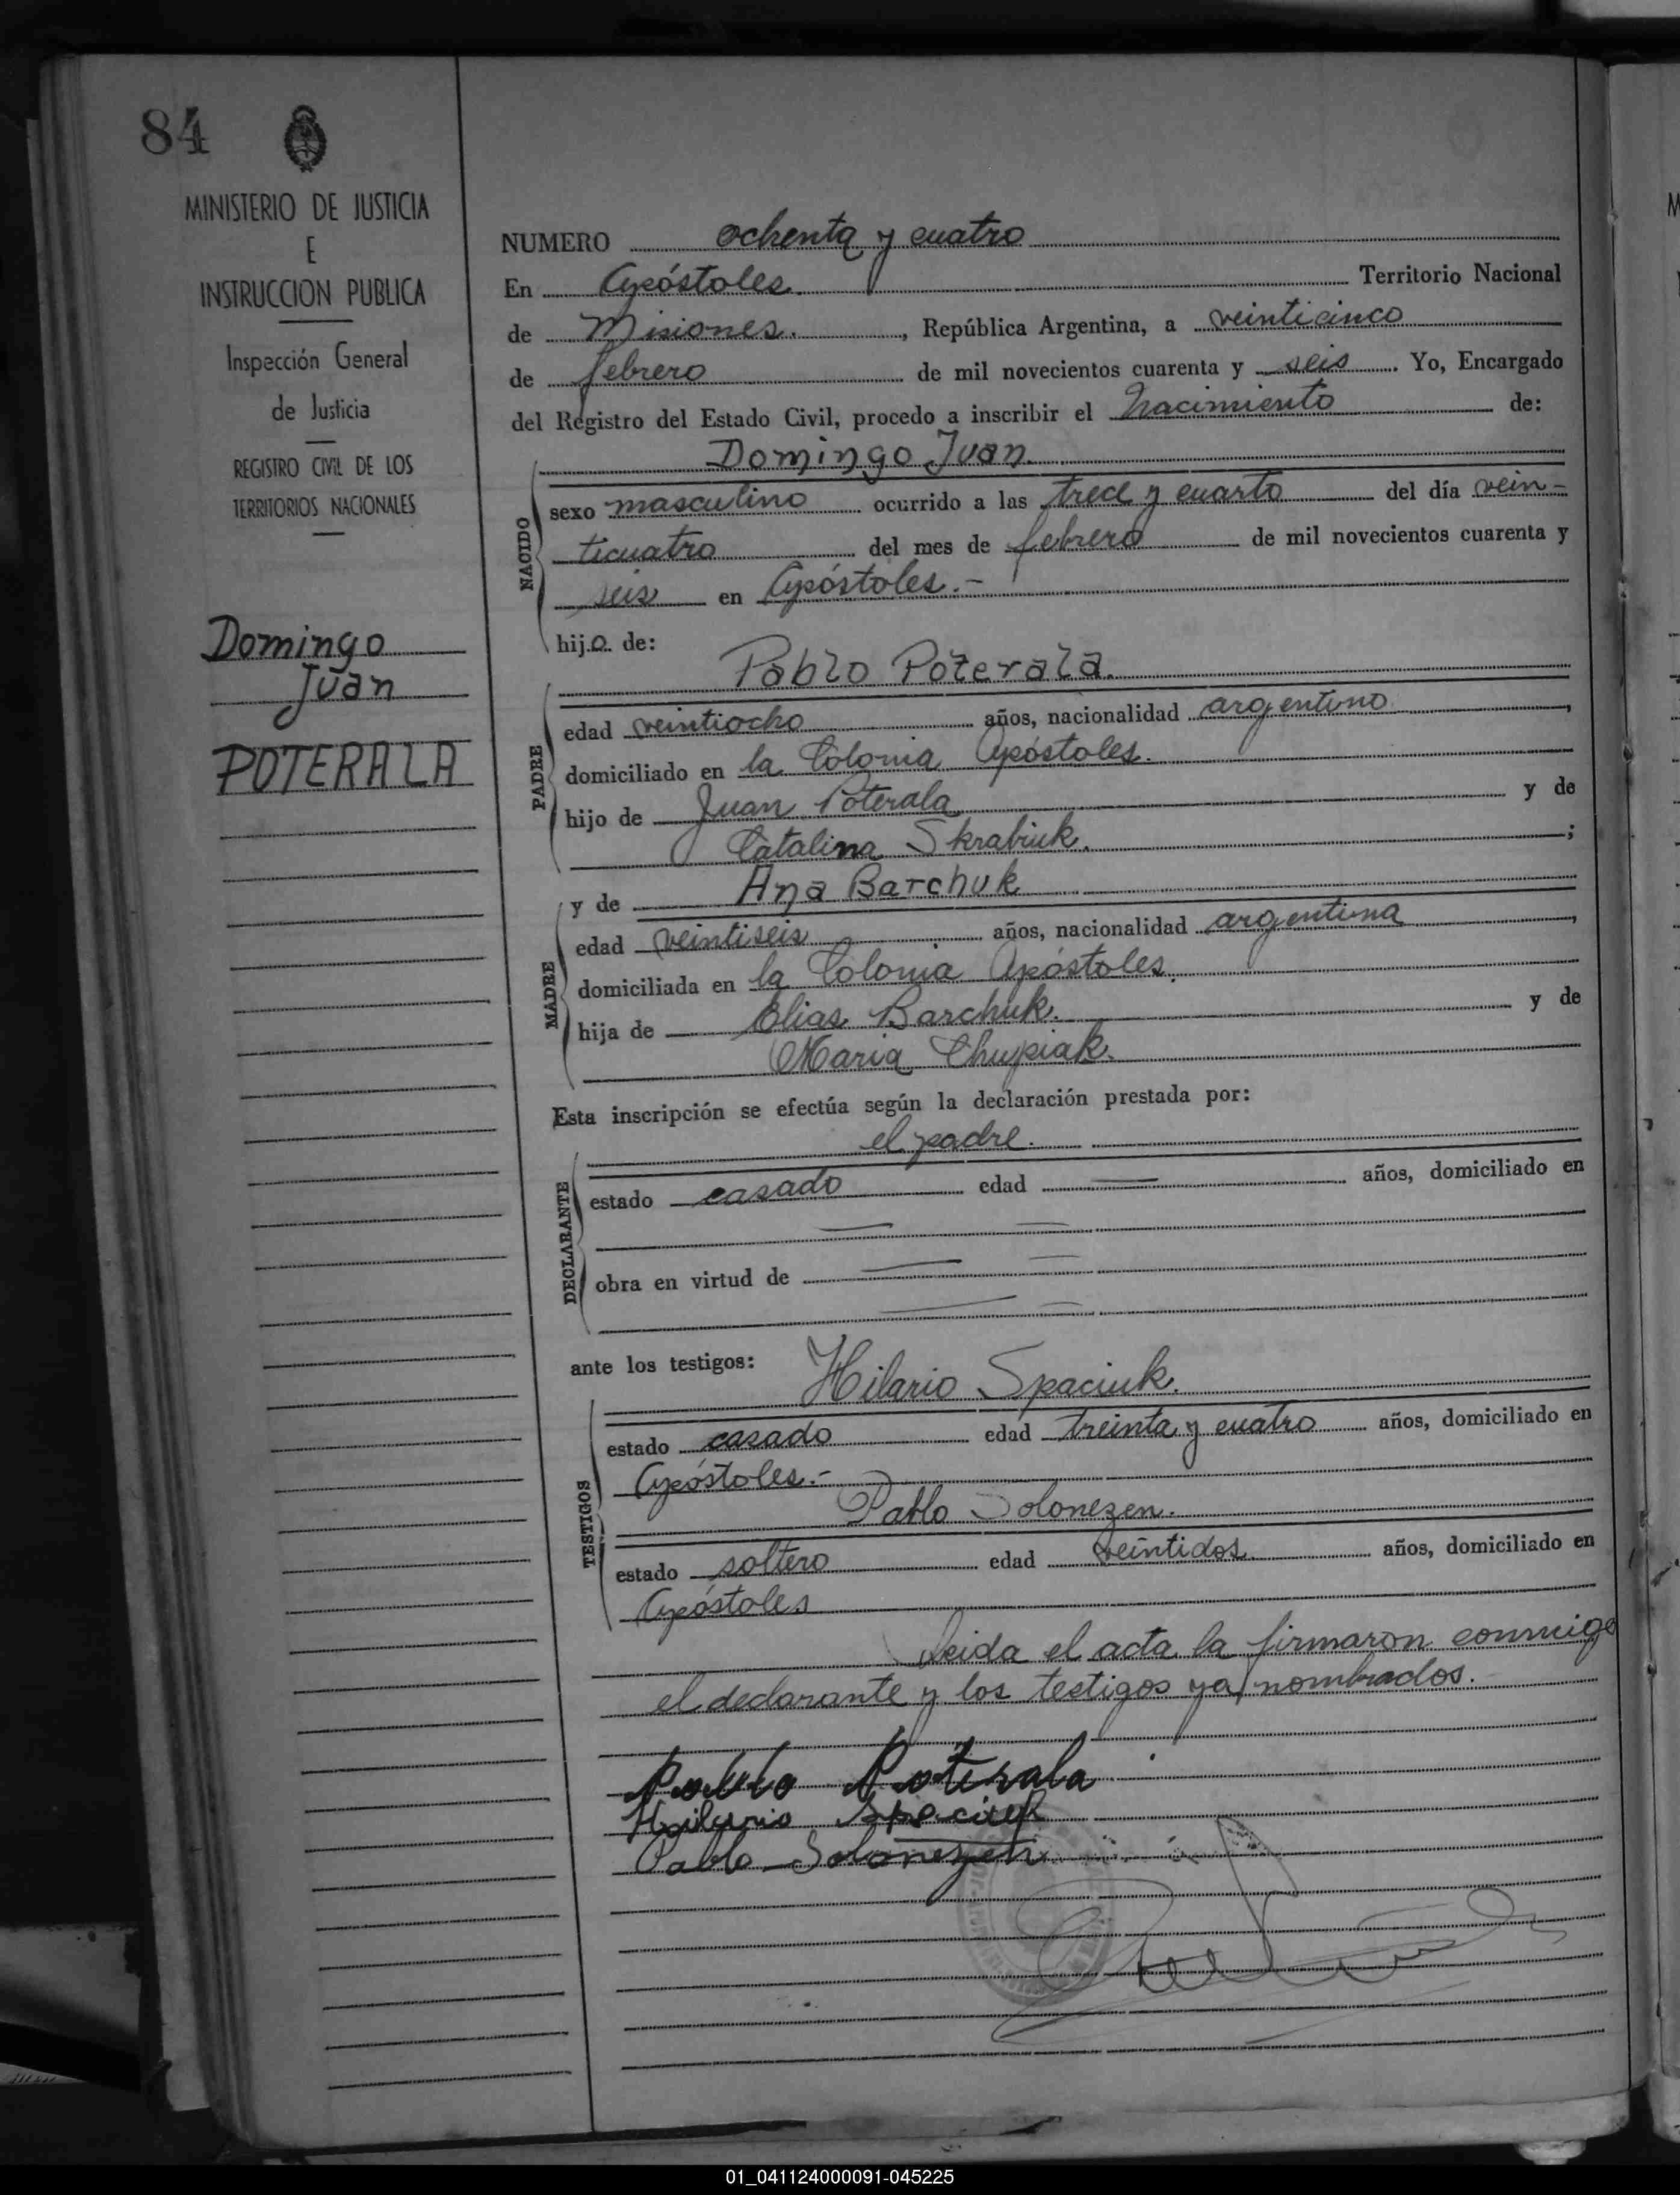 84
MINISTERIO DE JUSTICIA
E
INSTRUCCION PUBLICA
Inspección General
de Justicia
REGISTRO CIVIL DE LOS
TERRITORIOS NACIONALES
Domingo
Juan
POTERALA
NUMERO ochenta y cuatro
En Apóstoles. Territorio Nacional
de Misiones. , República Argentina, a veinticinco
de febrero de mil novecientos cuarenta y seis. Yo, Encargado
del Registro del Estado Civil, procedo a inscribir el Nacimiento de:
Domingo Juan.
NACIDO
sexo masculino ocurrido a las trece y cuarto del día vein-
ticuatro del mes de febrero de mil novecientos cuarenta y
seis en Apóstoles.-
hijo de:
Pablo Poterala.
PADRE
edad veintiocho años, nacionalidad argentino,
domiciliado en la Colonia Apóstoles.
hijo de Juan Poterala y de
Catalina Skrabiuk. ;
y de Ana Barchuk
MADRE
edad veintiseis años, nacionalidad argentina,
domiciliada en la Colonia Apóstoles.
hija de Elias Barchuk. y de
Maria Chupiak.
Esta inscripción se efectúa según la declaración prestada por:
el padre.
DECLARANTE
estado casado edad — años, domiciliado en
obra en virtud de
ante los testigos:
Hilario Spaciuk.
TESTIGOS
estado casado edad treinta y cuatro años, domiciliado en
Apóstoles.-
Pablo Solonezen.
estado soltero edad veintidos. años, domiciliado en
Apóstoles
Leida el acta la firmaron conmigo
el declarante y los testigos ya nombrados.
Pablo Poterala
Hilario Spaciuk
Pablo Solonezen
01_041124000091-045225